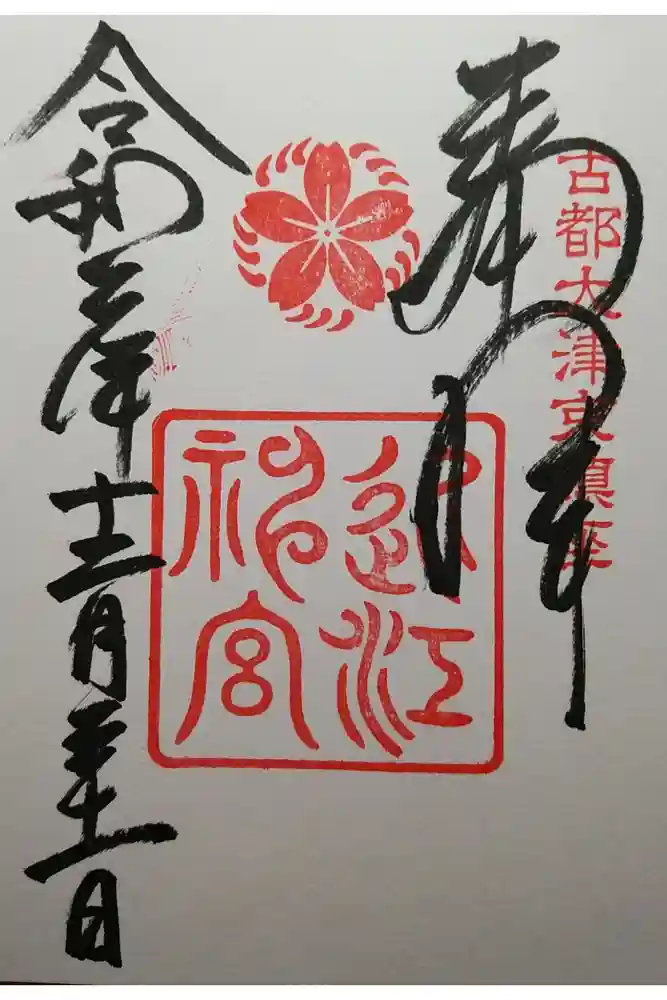 古都大津京鎮座
奉拝
近江
神宮
令和三年十二月三十一日